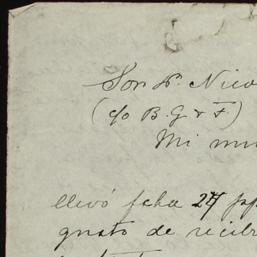 Sor. D. Nico
(c/o B. G & F.)
Mi mu
llevó fcha 27 pp
gusto de recib